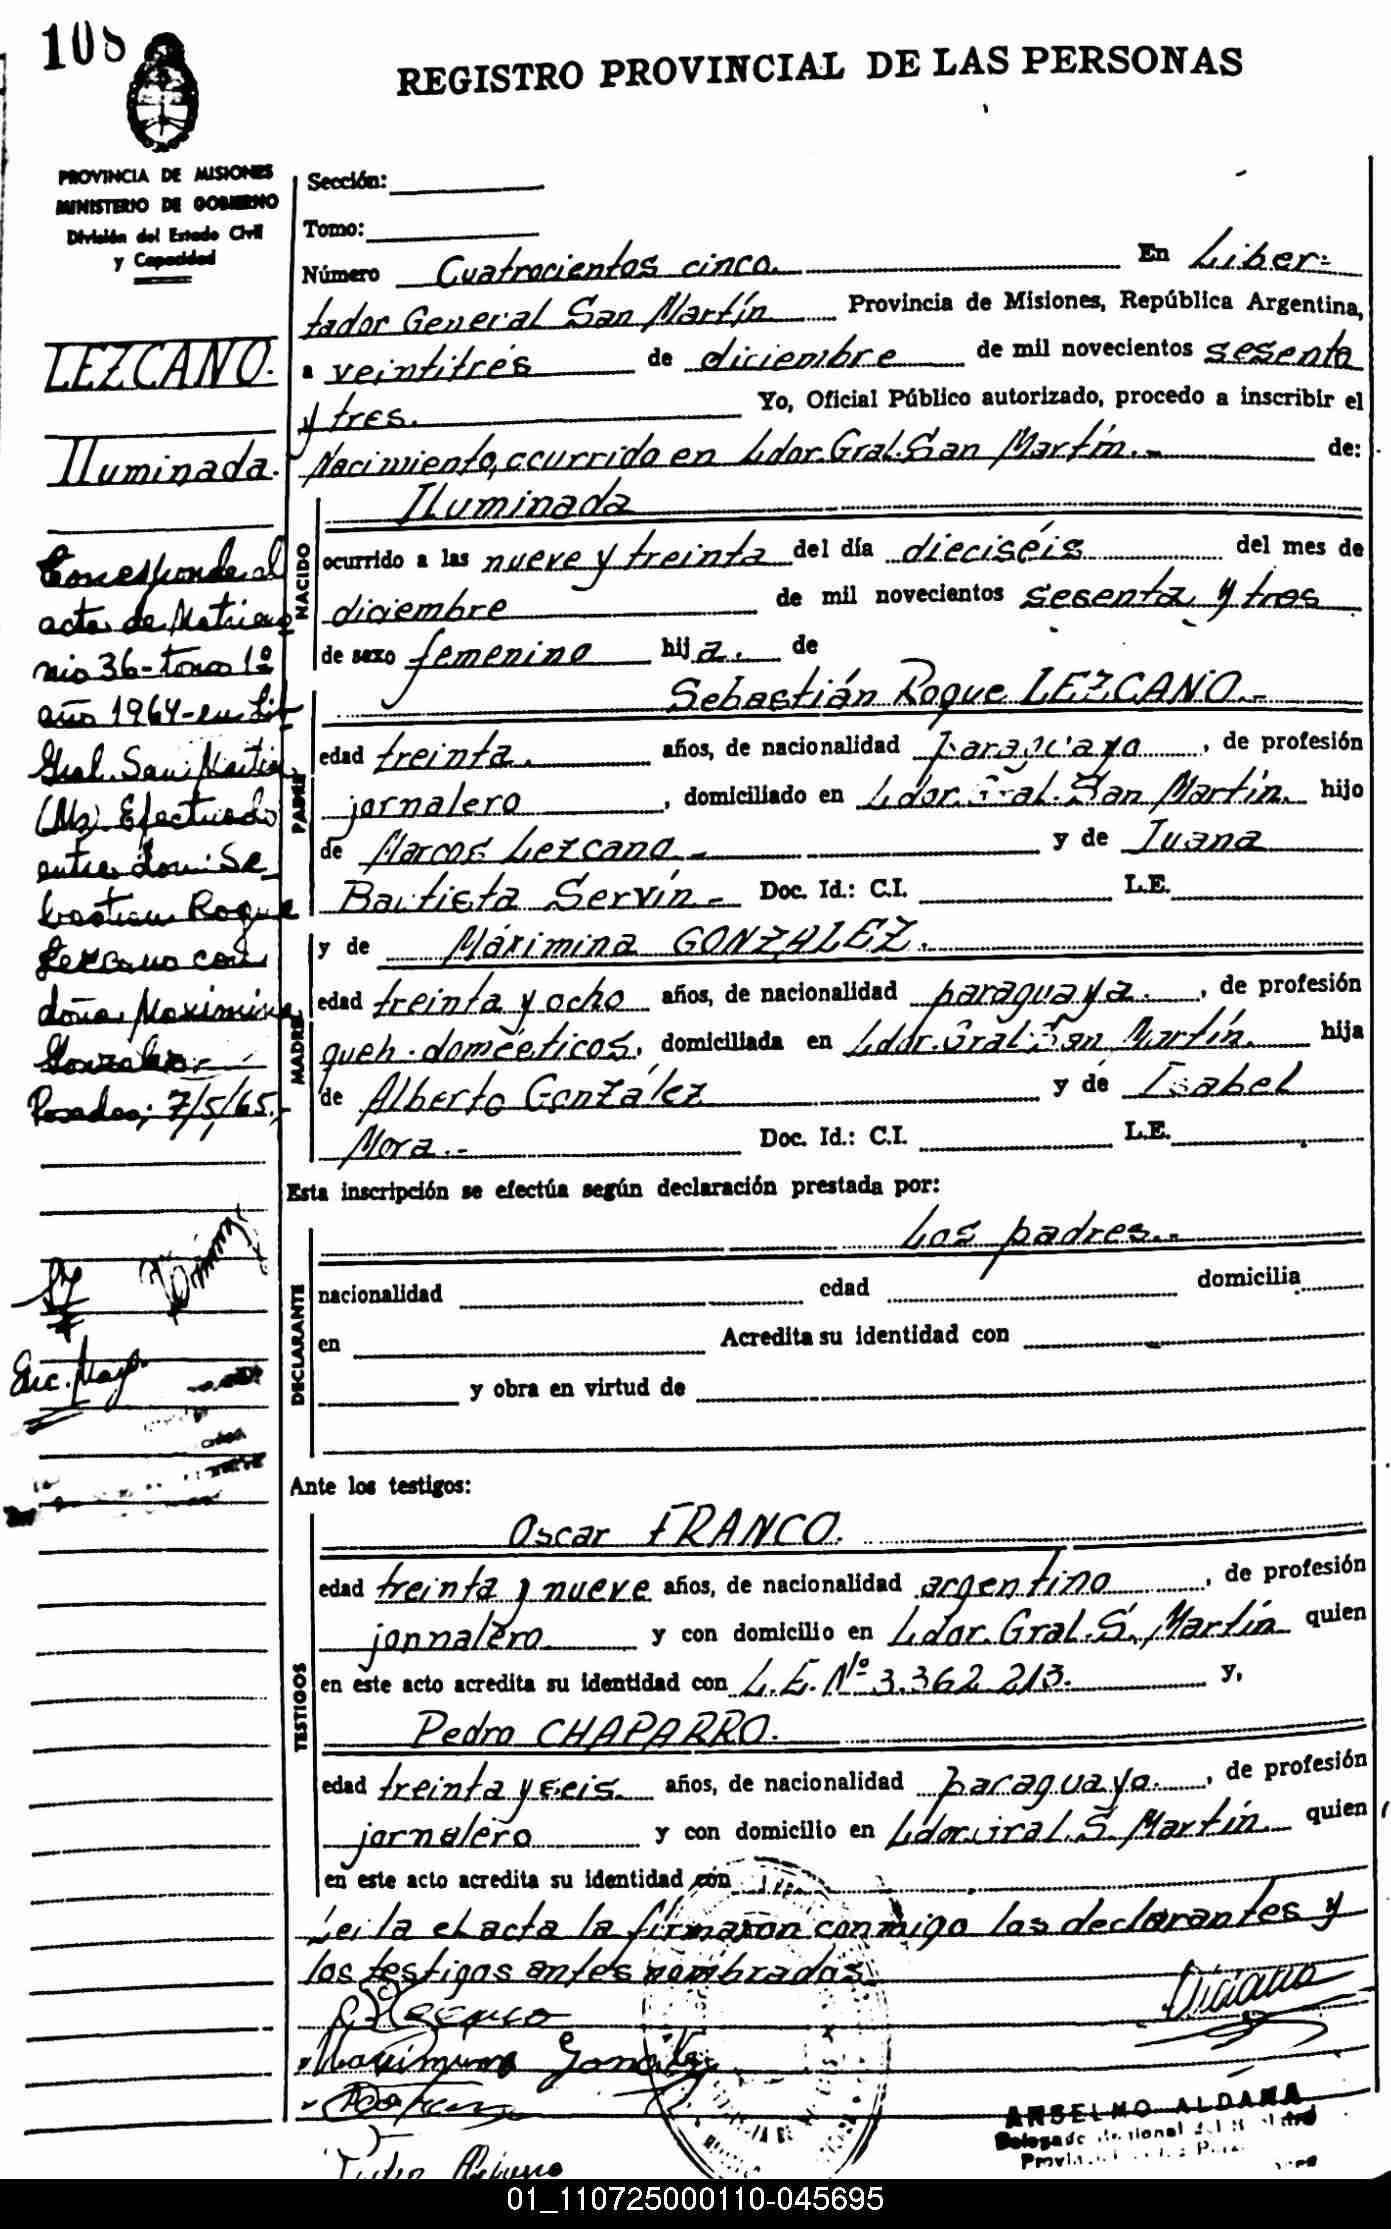 108
REGISTRO PROVINCIAL DE LAS PERSONAS
PROVINCIA DE MISIONES
MINISTERIO DE GOBIERNO
División del Estado Civil
y Capacidad
LEZCANO.
Iluminada.
Corresponde al
acta de Matrimo
nio 36-tomo 1º
año 1964-en Lib
Gral. San Martín
(Ms). Efectuado
entre don: Se
bastian Roque
Lezcano con
doña Maximina
Gonzalez.-
Posadas; 7/5/65.-
Sección:
Tomo:
Número Cuatrocientos cinco. En Liber-
tador General San Martín Provincia de Misiones, República Argentina,
a veintitrés de diciembre de mil novecientos sesenta
y tres. Yo, Oficial Público autorizado, procedo a inscribir el
Nacimiento, ocurrido en Ldor. Gral. San Martín.- de:
NACIDO
Iluminada
ocurrido a las nueve y treinta del día dieciséis del mes de
diciembre de mil novecientos sesenta y tres
de sexo femenino hija. de
PADRE
Sebastián Roque LEZCANO.-
edad treinta. años, de nacionalidad paraguayo, de profesión
jornalero, domiciliado en Ldor. Gral. San Martín. hijo
de Marcos Lezcano.- y de Juana
Bautista Servín.- Doc. Id.: C.I. L.E.
MADRE
y de Máximina GONZALEZ.
edad treinta y ocho años, de nacionalidad paraguaya., de profesión
queh. domésticos, domiciliada en Ldor. Gral. San Martín. hija
de Alberto González y de Isabel
Mora.- Doc. Id.: C.I. L.E.
Esta inscripción se efectúa según declaración prestada por:
DECLARANTE
Los padres.-
nacionalidad edad domicilia
en Acredita su identidad con
y obra en virtud de
Ante los testigos:
TESTIGOS
Oscar FRANCO.
edad treinta y nueve años, de nacionalidad argentino, de profesión
jornalero y con domicilio en Ldor. Gral. S. Martín quien
en este acto acredita su identidad con L.E. Nº 3.362.213. y,
Pedro CHAPARRO.
edad treinta y seis. años, de nacionalidad paraguayo., de profesión
jornalero y con domicilio en Ldor. Gral. S. Martín quien
en este acto acredita su identidad con
Leída el acta la firmaron conmigo los declarantes y
los testigos antes nombrados.
Maximina Gonzalez
ANSELMO ALDANA
01_110725000110-045695